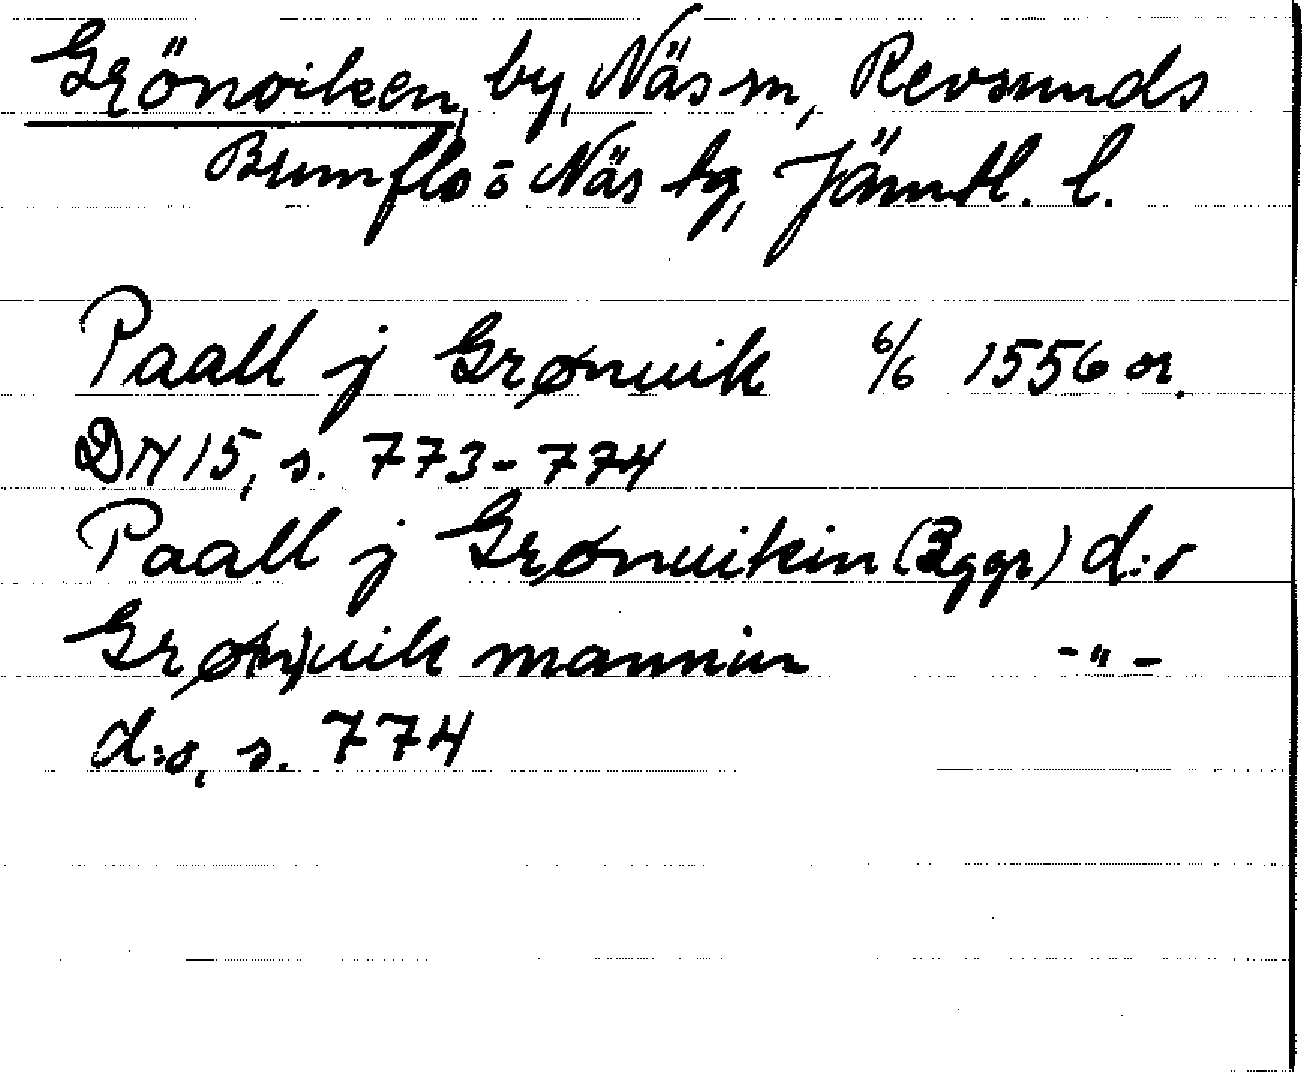 Grönviken, by, Näs sn, Revsunds
Brunflo o Näs tg, Jämtl. l.
Paall j Grønuik 6/6 1556 or.
DN 15, s. 773-774
Paall j Grønuikin (3 ggr) d:o
Grø(n)uik mannin -"-
d:o, s. 774